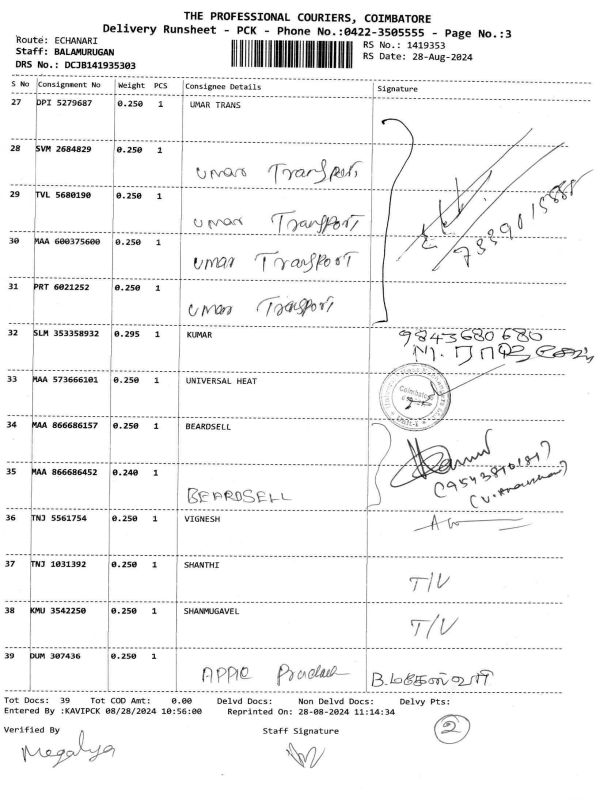 THE PROFESSIONAL COURIERS, COIMBATORE
Delivery Runsheet - PCK - Phone No.:0422-3505555 - Page No.:3
Route: ECHANARI
RS No.: 1419353
Staff: BALAMURUGAN
RS Date: 28-Aug-2024
DRS No.: DCJB141935303
S No Consignment No Weight PCS Consignee Details Signature
27 DPI 5279687 0.250 1 UMAR TRANS
28 SVM 2684829 0.250 1
umar Transport
29 TVL 5680190 0.250 1
umar Transport
30 MAA 600375600 0.250 1
umar Transport
31 PRT 6021252 0.250 1
umar Transport
32 SLM 353358932 0.295 1 KUMAR 9843680680
33 MAA 573666101 0.250 1 UNIVERSAL HEAT
Coimbatore
34 MAA 866686157 0.250 1 BEARDSELL
35 MAA 866686452 0.240 1
BEARDSELL
36 TNJ 5561754 0.250 1 VIGNESH
37 TNJ 1031392 0.250 1 SHANTHI
T/V
38 KMU 3542250 0.250 1 SHANMUGAVEL
T/V
39 DUM 307436 0.250 1
B.மகேஸ்வரி
Tot Docs: 39 Tot COD Amt: 0.00 Delvd Docs: Non Delvd Docs: Delvy Pts:
Entered By :KAVIPCK 08/28/2024 10:56:00 Reprinted On: 28-08-2024 11:14:34
2
Verified By Staff Signature
Megalya